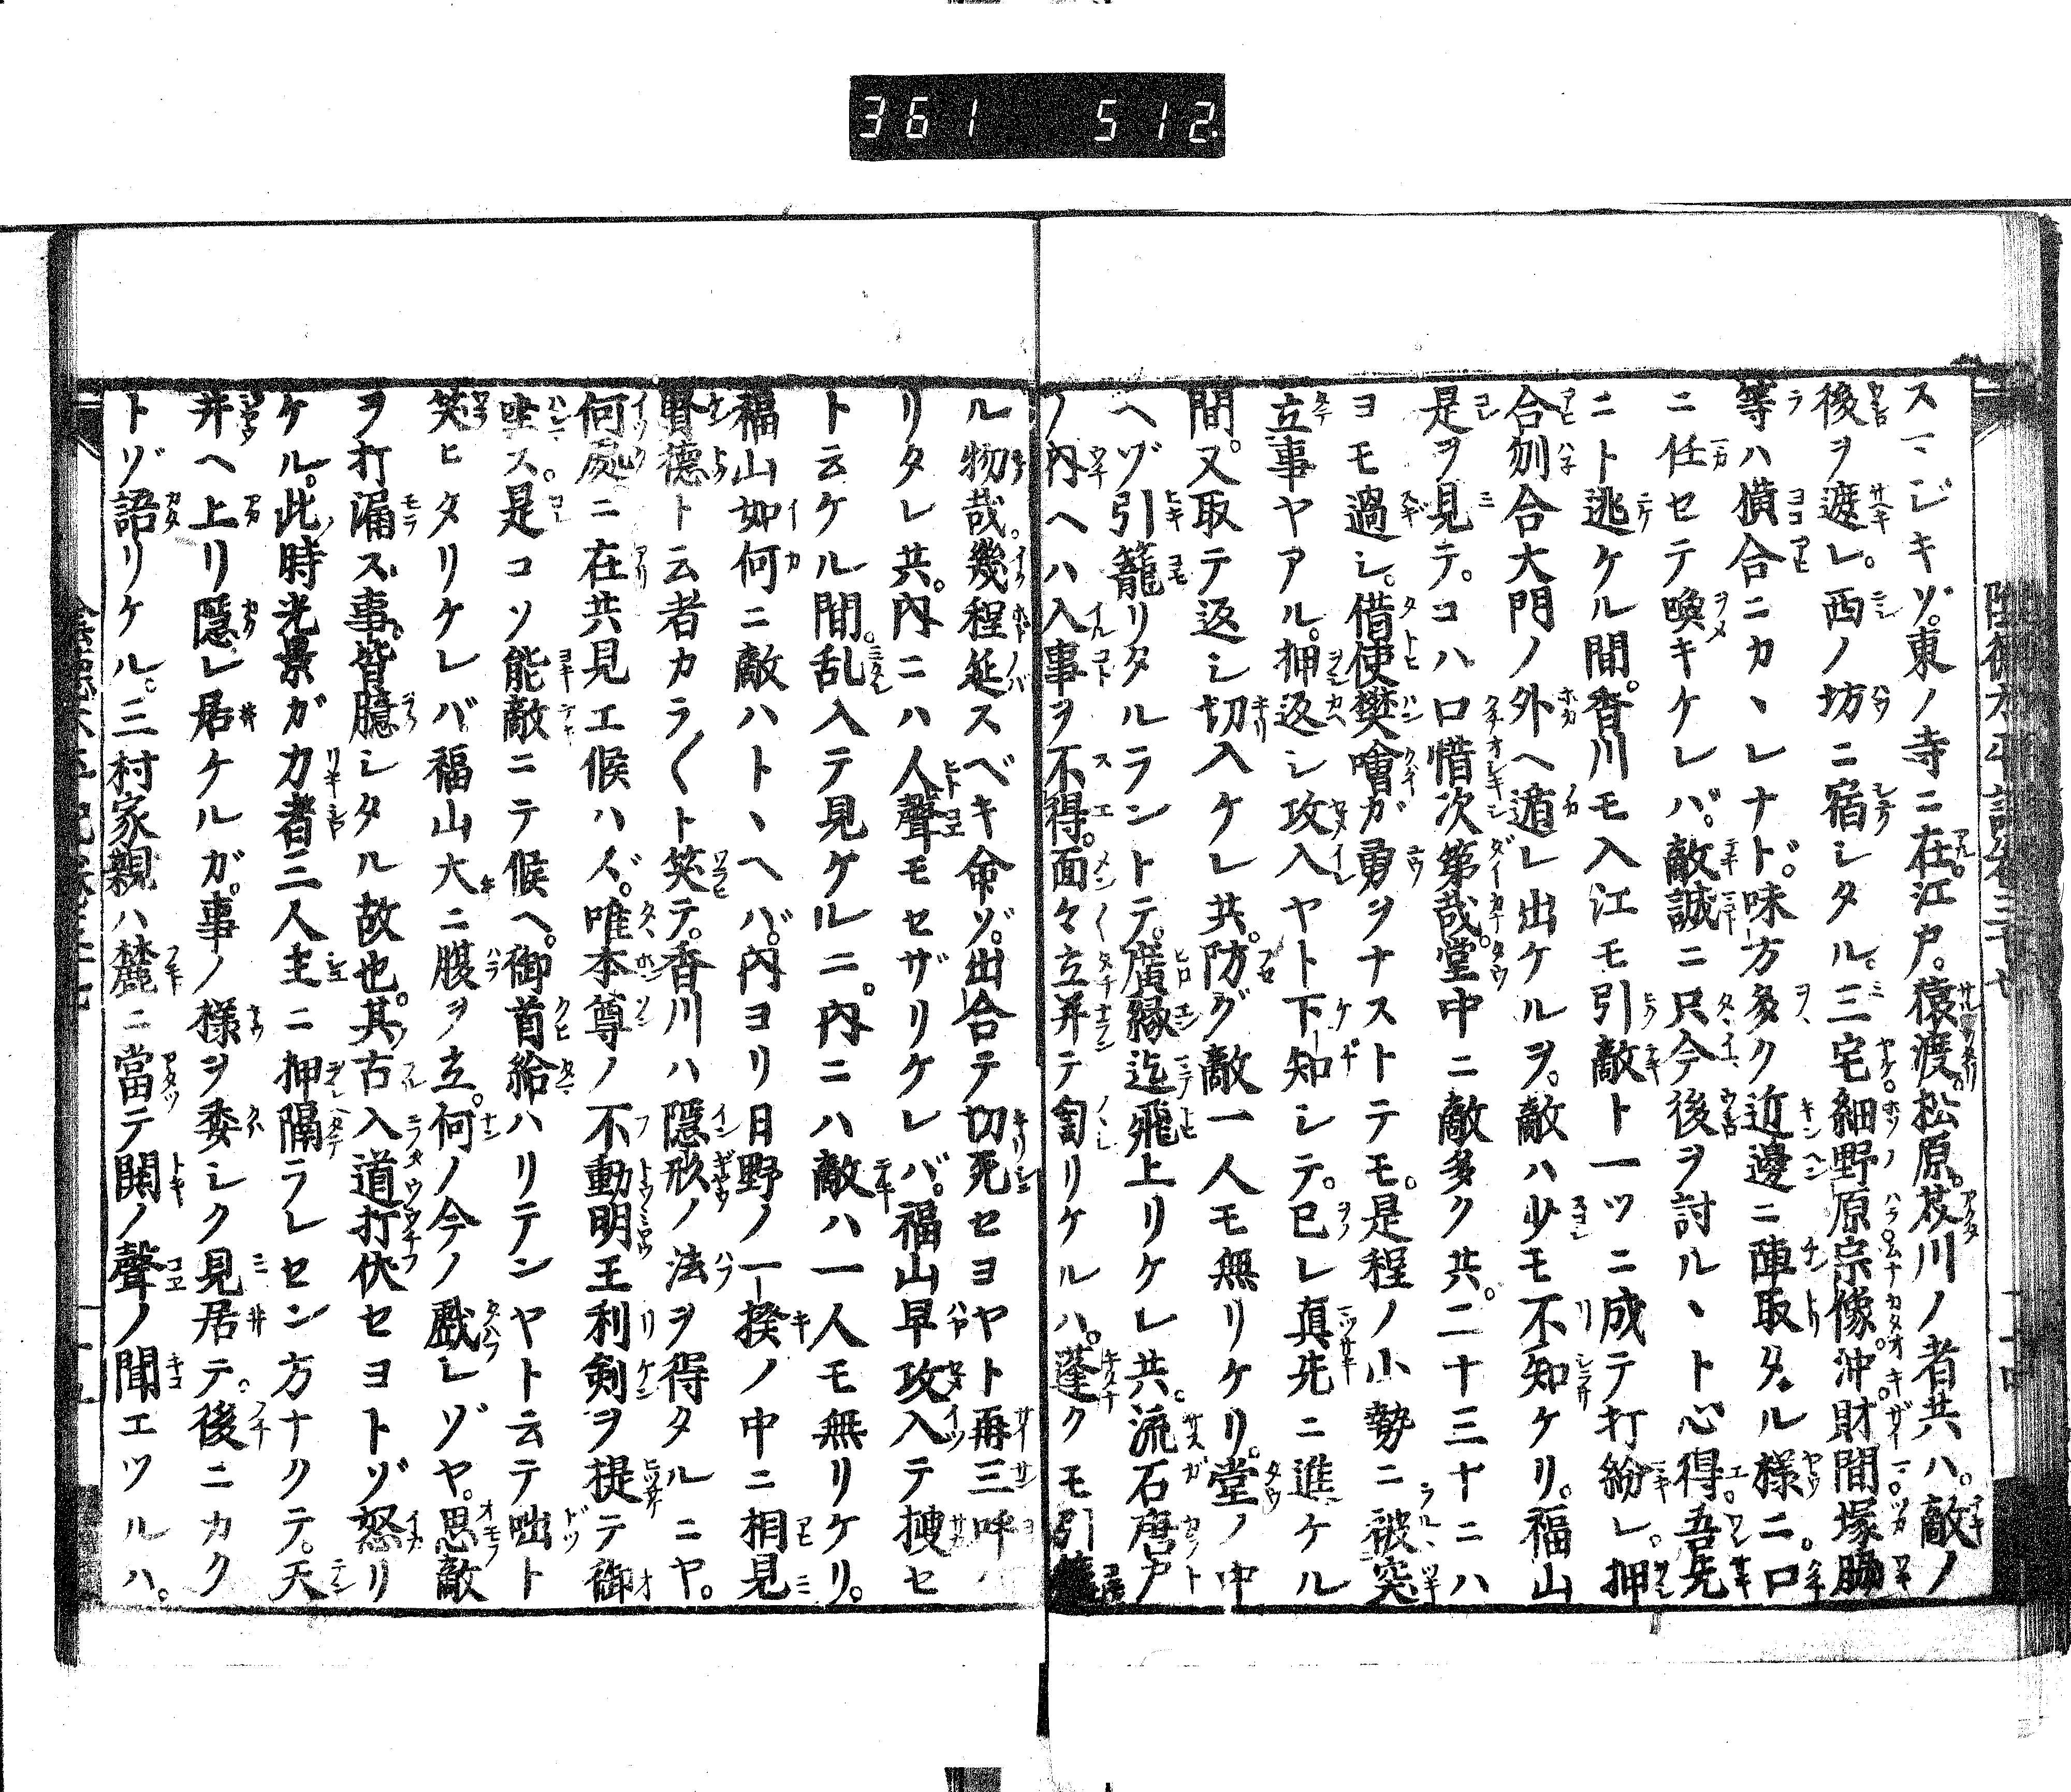 361 512.
スマジキゾ。東ノ寺ニ在。江戸。猿渡。松原。芥川ノ者共ハ。敵ノ
後ヲ遮レ。西ノ坊ニ宿シタル。三宅細野原宗像。沖。財間塚脇
等ハ横合ニカヽレナド。味方多ク近邊ニ陣取タル様ニ。口
ニ任セテ喚キケレバ。敵誠ニ只今後ヲ討ルヽト心得。吾先
ニト逃ケル間。香川モ入江モ引敵ト一ツニ成テ打紛レ。押
合刎合大門ノ外ヘ遁レ出ケルヲ。敵ハ少モ不知ケリ。福山
是ヲ見テ。コハ口惜次第哉。堂中ニ敵多ク共。二十三十ニハ
ヨモ過シ。借使樊噲ガ勇ヲナストテモ。是程ノ小勢ニ被突
立事ヤアル。押返シ攻入ヤト下知シテ。己レ真先ニ進ケル
間。又取テ返シ切入ケレ共。防グ敵一人モ無リケリ。堂ノ中
ヘゾ引籠リタルラントテ。廣縁迄飛上リケレ共。流石唐戸
ノ内ヘハ入事ヲ不得。面々立并テ訇リケルハ。蓬クモ引籠
ル物哉。幾程延スベキ命ゾ。出合テ切死セヨヤト再三呼ハ
リタレ共。内ニハ人聲モセザリケレバ。福山早攻入テ捜セ
ト云ケル間。乱入テ見ケルニ。内ニハ敵ハ一人モ無リケリ。
福山如何ニ敵ハトヽヘバ。内ヨリ日野ノ一揆ノ中ニ相見
賢徳ト云者カラ〱ト笑テ。香川ハ隱形ノ法ヲ得タルニヤ。
何處ニ在共見エ候ハズ。唯本尊ノ不動明王利剣ヲ提テ御
坐ス。是コソ能敵ニテ候ヘ。御首給ハリテンヤト云テ咄ト
笑ヒタリケレバ福山大ニ腹ヲ立。何ノ今ノ戲レゾヤ。思敵
ヲ打漏ス事。皆臆シタル故也。其古入道打伏セヨトゾ怒リ
ケル。此時光景ガ力者三人主ニ押隔ラレセン方ナクテ。天
井ヘ上リ隱レ居ケルガ。事ノ様ヲ委シク見居テ。後ニカク
トゾ語リケル。三村家親ハ麓ニ當テ鬨ノ聲ノ聞エツルハ。